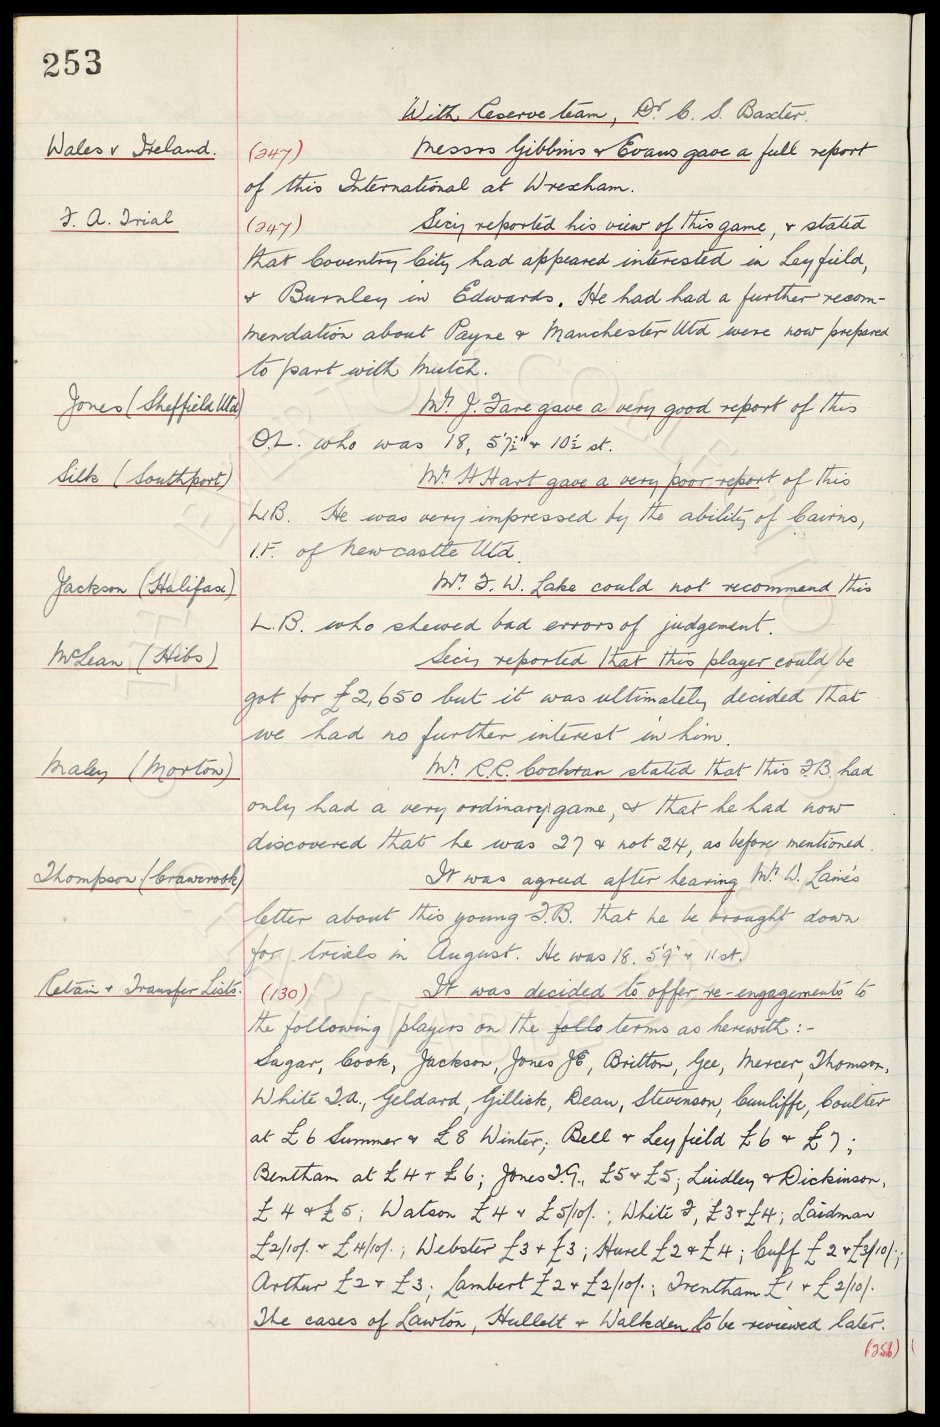 253
With Reserve team, Dr. C. S. Baxter.
Wales v Ireland. (247) Messrs Gibbins & Evans gave a full report
of this International at Wrexham.
F. A. Trial (247) Secy reported his view of this game, & stated
that Coventry City had appeared interested in Leyfield,
& Burnley in Edwards. He had had a further recom-
mendation about Payne & Manchester Utd were now prepared
to part with Mutch.
Jones (Sheffield Utd) Mr. J. Fare gave a very good report of this
O.L. who was 18, 5'7½" & 10½ st.
Silk (Southport) Mr. H Hart gave a very poor report of this
L.B. He was very impressed by the ability of Cairns,
I.F. of Newcastle Utd.
Jackson (Halifax) Mr. F. W. Lake could not recommend this
L.B. who shewed bad errors of judgement.
McLean (Hibs) Secy reported that this player could be
got for £2,650 but it was ultimately decided that
we had no further interest in him.
Maley (Morton) Mr. R.R. Cochran stated that this F.B. had
only had a very ordinary game, & that he had now
discovered that he was 27 & not 24, as before mentioned.
Thompson (Crawcrook) It was agreed after hearing Mr. W. Laine's
letter about this young F.B. that he be brought down
for trials in August. He was 18. 5'9" & 11 st.
Retain & Transfer Lists. (130) It was decided to offer re-engagements to
the following players on the follo terms as herewith :-
Sagar, Cook, Jackson, Jones J E, Britton, Gee, Mercer, Thomson,
White T.A., Geldard, Gillick, Dean, Stevenson, Cunliffe, Coulter
at £6 Summer & £8 Winter; Bell & Leyfield £6 & £7;
Bentham at £4 & £6; Jones T.G., £5 & £5; Lindley & Dickinson,
£4 & £5; Watson £4 & £5/10/-; White F, £3 & £4; Laidman
£2/10/- & £4/10/-; Webster £3 & £3; Hurel £2 & £4; Cuff £2 & £3/10/-;
Arthur £2 & £3; Lambert £2 & £2/10/-; Trentham £1 & £2/10/-
The cases of Lawton, Hullett & Walkden to be reviewed later.
(256)